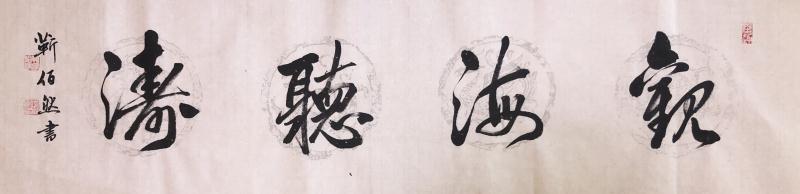 觀海聽濤
靳佰然書